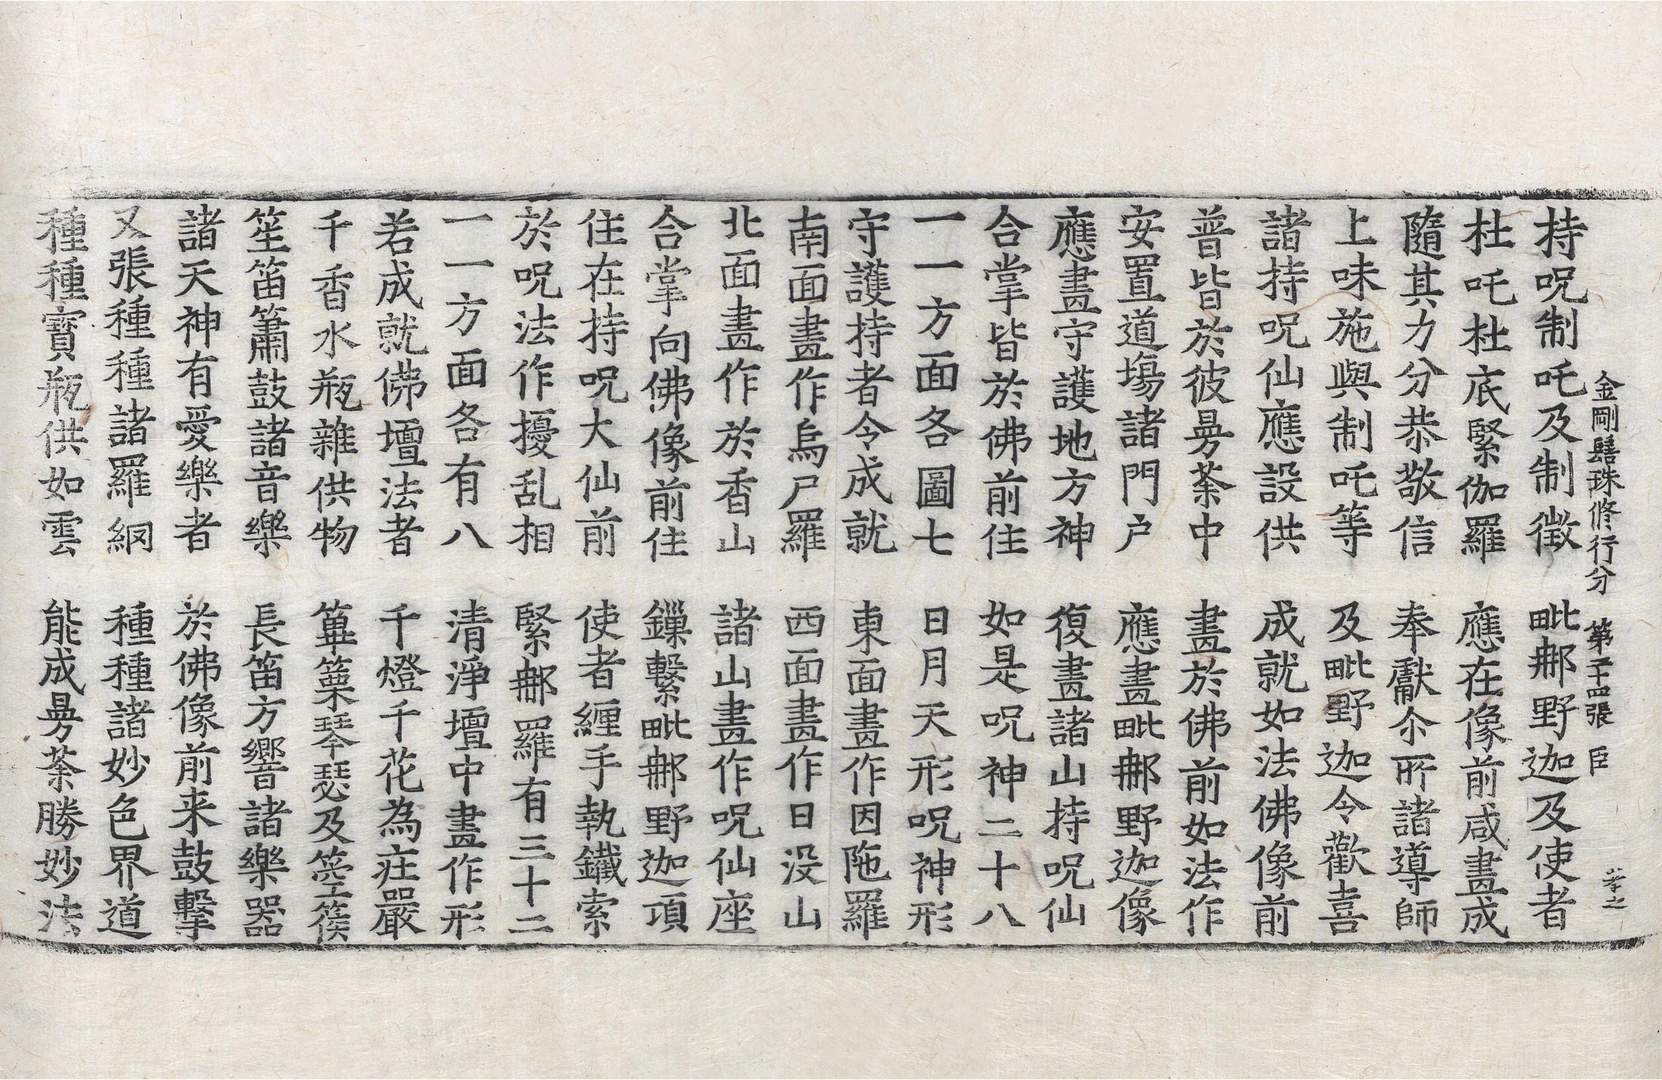 金剛鬘珠修行分　第二十四張　臣
持呪制吒及制徵　毗那野迦及使者
杜吒杜底緊伽羅　應在像前咸畫成
隨其力分恭敬信　奉獻尒所諸導師
上味施與制吒等　及毗野迦令歡喜
諸持呪仙應設供　成就如法佛像前
普皆於彼曼荼中　畫於佛前如法作
安置道場諸門户　應畫毗那野迦像
應畫守護地方神　復畫諸山持呪仙
合掌皆於佛前住　如是呪神二十八
一一方面各圖七　日月天形呪神形
守護持者令成就　東面畫作因陁羅
南面畫作烏尸羅　西面畫作日没山
北面畫作於香山　諸山畫作呪仙座
合掌向佛像前住　鏁繫毗那野迦項
住在持呪大仙前　使者纏手執鐵索
於呪法作擾乱相　緊那羅有三十二
一一方面各有八　清淨壇中畫作形
若成就佛壇法者　千燈千花為莊嚴
千香水瓶雜供物　篳篥琴瑟及箜篌
笙笛簫鼓諸音樂　長笛方響諸樂器
諸天神有愛樂者　於佛像前来鼓擊
又張種種諸羅網　種種諸妙色界道
種種寶瓶供如雲　能成曼荼勝妙法